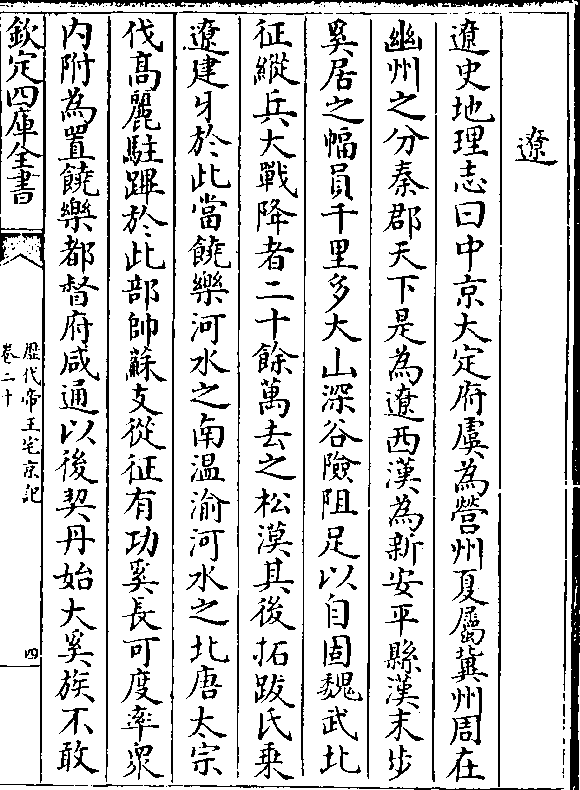 遼
遼史地理志曰中京大定府虞為營州夏屬冀州周在
幽州之分秦郡天下是為遼西漢為新安平縣漢末步
奚居之幅員千里多大山深谷險阻足以自固魏武北
征縱兵大戰降者二十餘萬去之松漠其後拓跋氏乗
遼建牙於此當饒樂河水之南温渝河水之北唐太宗
伐髙麗駐蹕於此部帥蘇支從征有功奚長可度率衆
内附為置饒樂都督府咸通以後契丹始大奚族不敢
欽定四庫全書
歴代帝王宅京記
卷二十
四